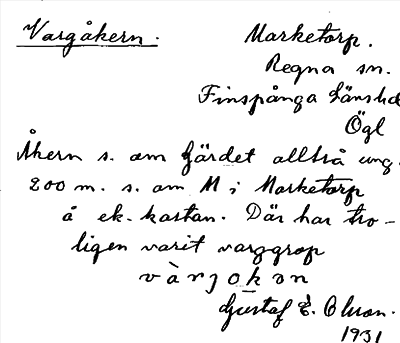 Vargåkern.
Marketorp.
Regna sn.
Finspånga länshd
Ögl
Åkern s. om Gärdet alltså ung.
200 m. s. om M i Marketorp
å ek. kartan. Där har tro-
ligen varit varggrop
Gustaf E. Olson.
1931